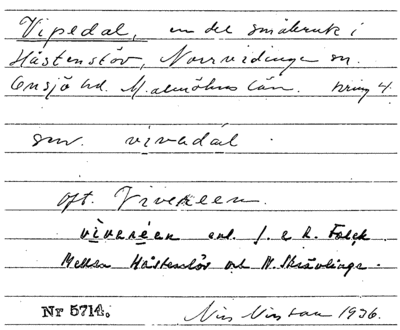 Vipedal, en del småbruk i
Hästenslöv, Norrvidinge sn.
Onsjö hd. M.almöhus län. kring 4.
sm. vivadál.
oft. Viveréen.
vivaréen enl. J. a h. Falck
Mellan Hästenslöv och N. Skrävlinge.
Nr 5714. Nils Nilsson 1936.